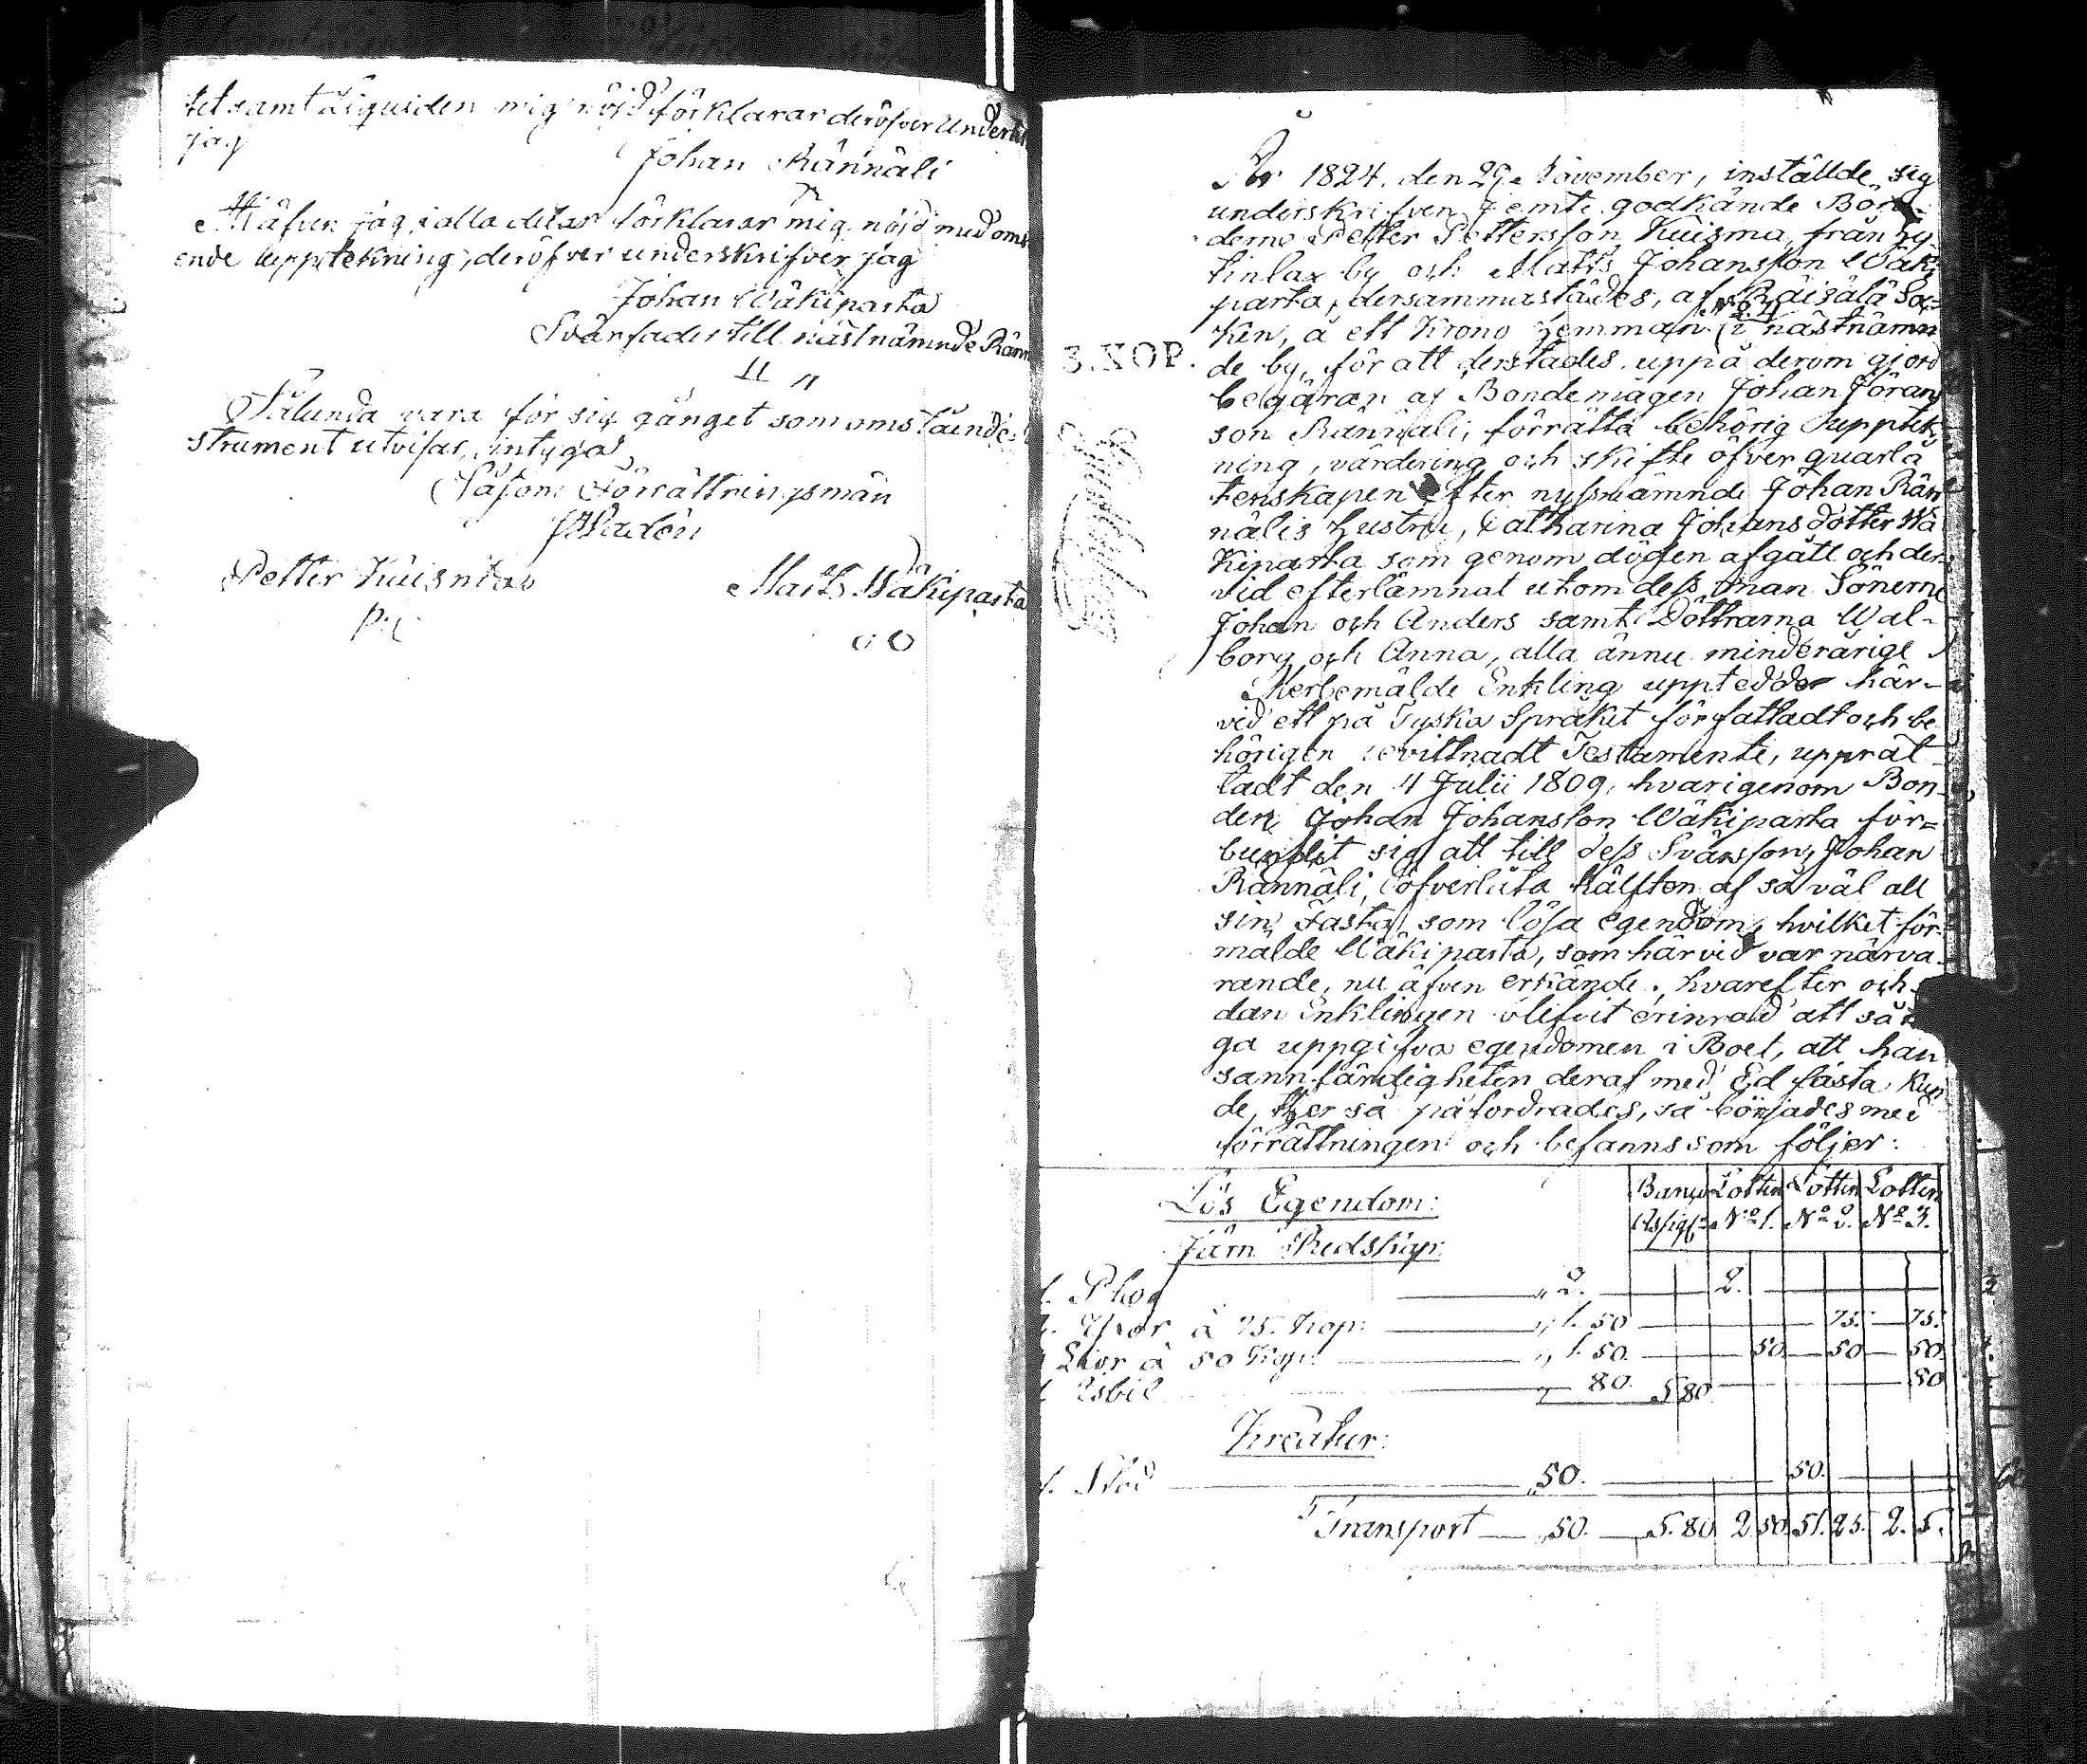 tet samt Liquiden mig nöjd förklarar deröfver Underte
jag
Johan Rännäli
Äfven jag i alla delar förklarar mig nöjd med oms
ende upptekning, deröfver underskrifver jag
Johan Wäkiparta
Svärfader till näst nämnde Ränn
Sålunda vara för sig gånget som omstående
strument utvisar, intyga
Såsom Förrättningsmän
Petter Kuisma
Matts Wäkiparta
År 1824. den 29 November, inställde sig
underskrifven jemte godkände Bön
derne Petter Pettersson Kuisma från
tinlax by och Matts Johansson Wäki
parta, dersammastädes, af Räisälä Soc=
ken, å ett Krono Hemman i nästnämn
de by, för att derstädes uppå derom gjord
3. KOP.
begäran af Bondemågen Johan Jörans
son Rännäli, förrätta behörig upptek
ning, värdering och skifte öfver quarlå
tenskapen efter nyssnämnde Johan Rän
nälis hustru, Catharina Johans dotter Wä
kiparta som genom döden afgått och der
vid efterlämnat utom dess man Sönerne
Johan och Anders samt Döttrarna Wal-
borg och Anna, alla ännu minderårige
Merbemälde Enkling uppteddde här-
vid ett på Tyska Språket författadt och be
hörigen bevittnadt Testamente, upprät
tadt den 4 Julii 1809, hvarigenom Bon-
den Johan Johansson Wäkiparta för=
bundit sig att till dess Svärson, Johan
Rännäli, öfverlåta hälften af så väl all
sin Fasta som lösa egendom, hvilket för
mälde Wäkiparta, som härvid var närva-
rande, nu äfven erkände. hvarefter och
dan Enklingen blifvit erinrad att så
ga uppgifva egendomen i Boet, att han
sannfärdigheten deraf med Ed fästa kun
de, der så påfordrades, så börjades med
förrättningen och befanns som följer:
Lös Egendom: Banco Lotten Lotten Lotten
Assign: No 1. No 2. No 3.
Järn Redskap:
1. Plog 2. 2.
à 75. Kop: 1. 50 75. 75.
Lior à 50 Kop: 1. 50. 50 50 50.
80. 5 80 80
Kreatur:
1. Stod 50. 50.
Transport 50. 5. 80. 2 50. 51. 25. 2. 5.